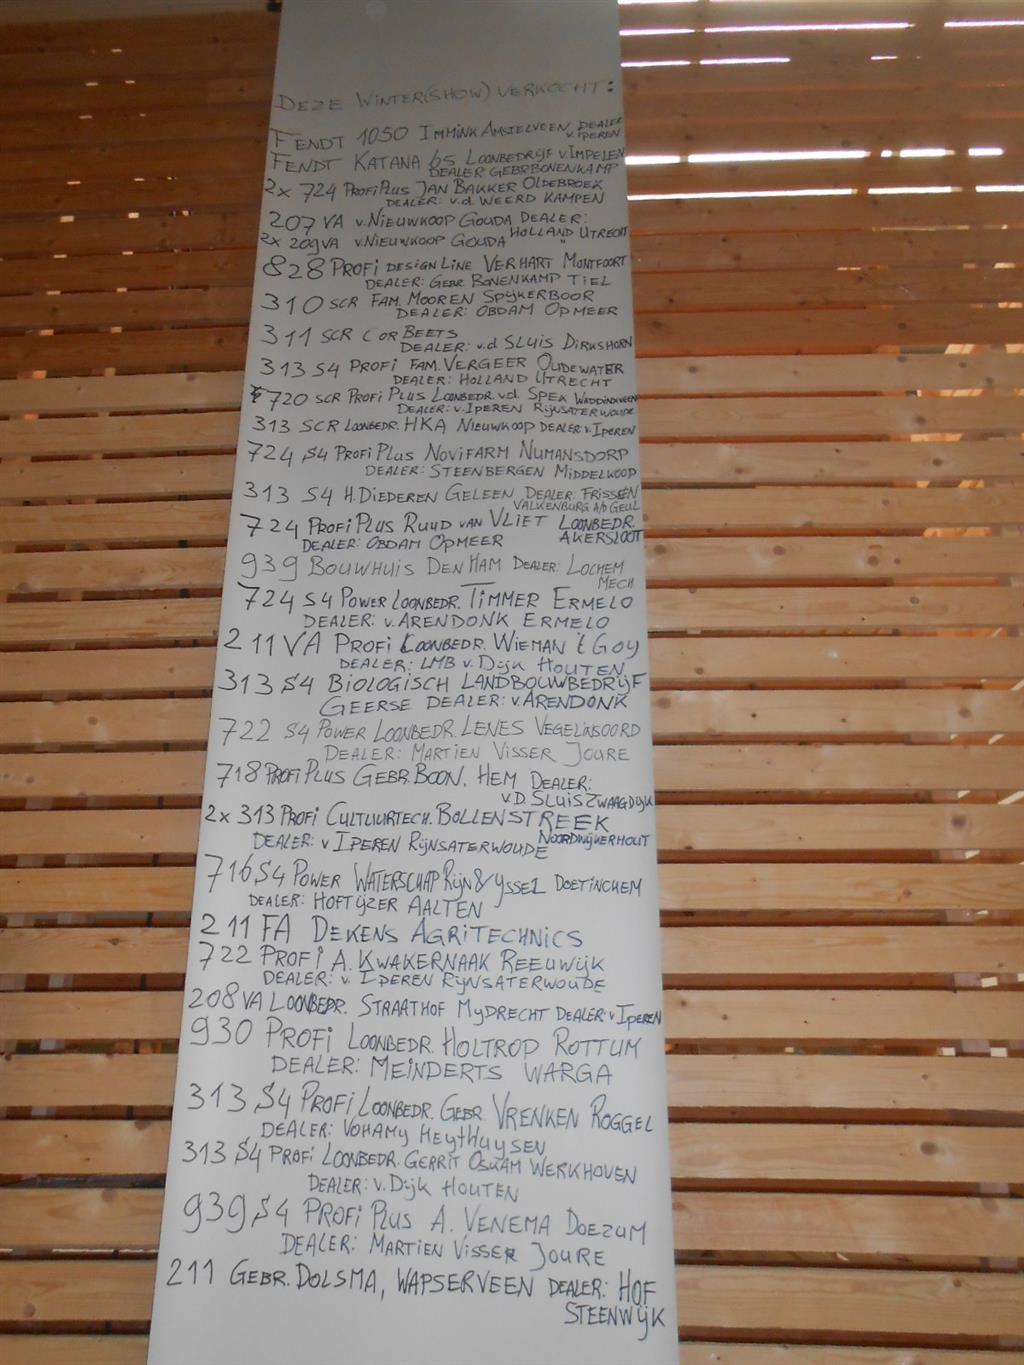 DEZE WINTER(SHOW) VERKOCHT:
FENDT 1050 IMMINK AMSTELVEEN DEALER
v. IPEREN
FENDT KATANA 65 LOONBEDRIJF v. IMPELEN
DEALER GEBR BONENKAMP
2x 724 PROFI PLUS JAN BAKKER OLDEBROEK
DEALER: v.d. WEERD KAMPEN
207 VA v. NIEUWKOOP GOUDA DEALER:
HOLLAND UTRECHT
2x 209 VA v. NIEUWKOOP GOUDA "
828 PROFI DESIGN LINE VERHART MONTFOORT
DEALER: GEBR BONENKAMP TIEL
310 SCR FAM. MOOREN SPIJKERBOOR
DEALER: OBDAM OPMEER
311 SCR COR BEETS
DEALER: v.d SLUIS DIRKSHORN
313 S4 PROFI FAM. VERGEER OUDEWATER
DEALER: HOLLAND UTRECHT
720 SCR PROFI PLUS LOONBEDR. v.d. SPEK WADDINXVEEN
DEALER: v. IPEREN RIJNSATERWOUDE
313 SCR LOONBEDR. HKA NIEUWKOOP DEALER: v. IPEREN
724 S4 PROFI PLUS NOVIFARM NUMANSDORP
DEALER: STEENBERGEN MIDDELKOOP
313 S4 H. DIEDEREN GELEEN DEALER: FRISSEN
VALKENBURG A/D GEUL
724 PROFI PLUS RUUD VAN VLIET LOONBEDR.
DEALER: OBDAM OPMEER AKERSLOOT
939 BOUWHUIS DEN HAM DEALER: LOCHEM
MECH
724 S4 POWER LOONBEDR. TIMMER ERMELO
DEALER: v. ARENDONK ERMELO
211 VA PROFI LOONBEDR. WIEMAN 't GOY
DEALER: LMB v. DIJK HOUTEN
313 S4 BIOLOGISCH LANDBOUWBEDRIJF
GEERSE DEALER: v. ARENDONK
722 S4 POWER LOONBEDR. LENES VEGELINSOORD
DEALER: MARTIEN VISSER JOURE
718 PROFI PLUS GEBR. BOON, HEM DEALER:
v.D. SLUIS ZWAAGDIJK
2x 313 PROFI CULTUURTECH. BOLLENSTREEK
NOORDWIJKERHOUT
DEALER: v IPEREN RIJNSATERWOUDE
716 S4 POWER WATERSCHAP RIJN & YSSEL DOETINCHEM
DEALER: HOFTIJZER AALTEN
211 FA DEKENS AGRITECHNICS
722 PROFI A. KWAKERNAAK REEUWIJK
DEALER: v. IPEREN RIJNSATERWOUDE
208 VA LOONBEDR. STRAATHOF MYDRECHT DEALER: v IPEREN
930 PROFI LOONBEDR. HOLTROP ROTTUM
DEALER: MEINDERTS WARGA
313 S4 PROFI LOONBEDR. GEBR. VRENKEN ROGGEL
DEALER: VOHAMY HEYTHUYSEN
313 S4 PROFI LOONBEDR. GERRIT OSKAM WERKHOVEN
DEALER: v. DIJK HOUTEN
939 S4 PROFI PLUS A. VENEMA DOEZUM
DEALER: MARTIEN VISSER JOURE
211 GEBR. DOLSMA, WAPSERVEEN DEALER: HOF
STEENWIJK